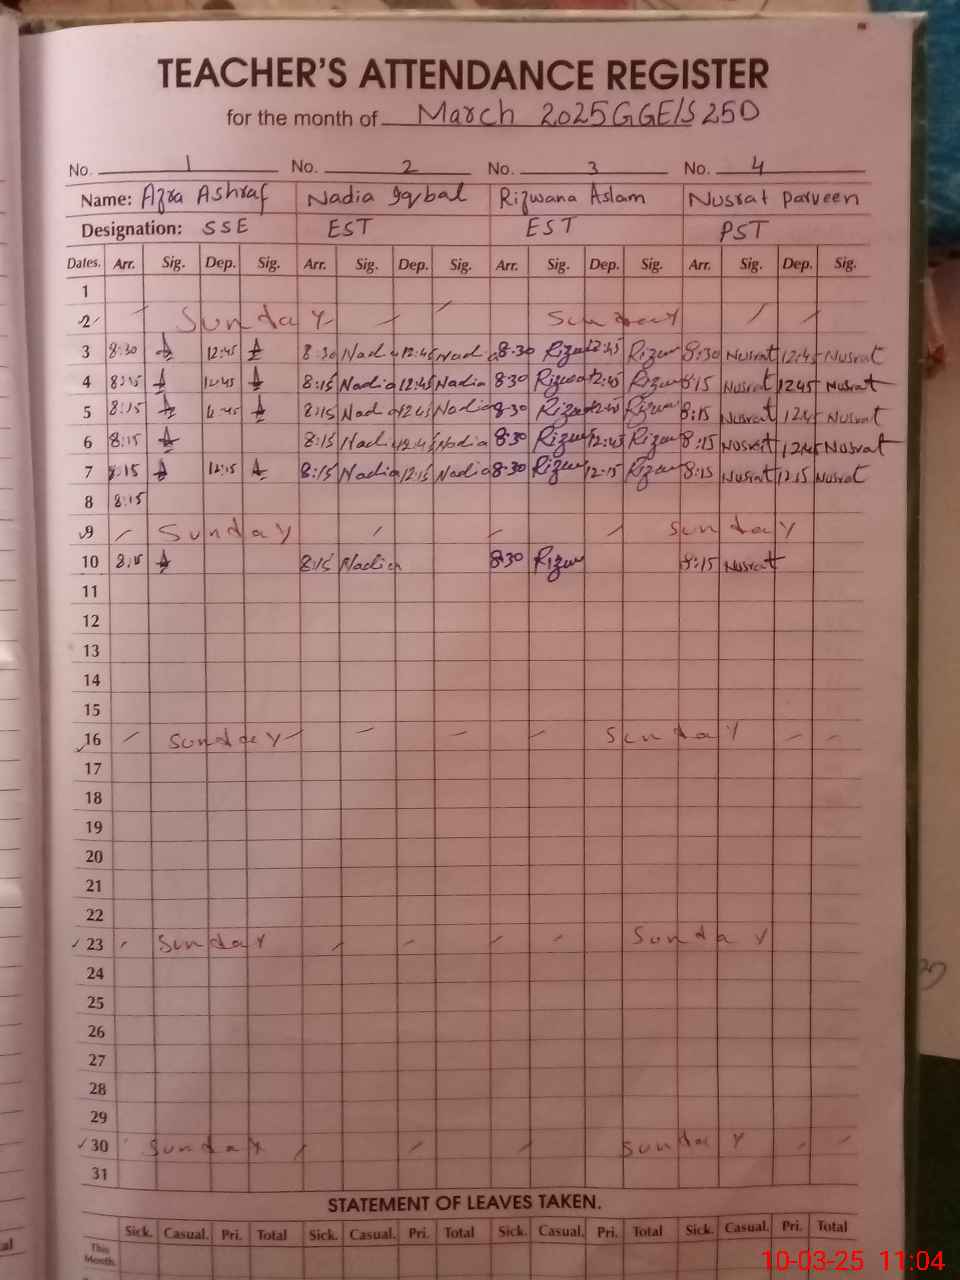 TEACHER'S ATTENDANCE REGISTER
for the month of March 2025 GGE/S 250
No. 1 No. 2 No. 3 No. 4
Name: Azra Ashraf Nadia Iqbal Rizwana Aslam Nusrat Parveen
Designation: SSE EST EST PST
Dates. Arr. Sig. Dep. Sig. Arr. Sig. Dep. Sig. Arr. Sig. Dep. Sig. Arr. Sig. Dep. Sig.
1
2 Sunday Sunday
3 8:30 12:45 8:30 Nadia 12:45 Nadia 8:30 Rizwan 12:45 Rizwan 8:30 Nusrat 12:45 Nusrat
4 8:15 12:45 8:15 Nadia 12:45 Nadia 8:30 Rizwan 12:45 Rizwan 8:15 Nusrat 12:45 Nusrat
5 8:15 12:45 8:15 Nadia 12:45 Nadia 8:30 Rizwan 12:45 Rizwan 8:15 Nusrat 12:45 Nusrat
6 8:15 8:15 Nadia 12:45 Nadia 8:30 Rizwan 12:45 Rizwan 8:15 Nusrat 12:45 Nusrat
7 8:15 12:15 8:15 Nadia 12:15 Nadia 8:30 Rizwan 12:15 Rizwan 8:15 Nusrat 12:15 Nusrat
8 8:15
9 Sunday Sunday
10 8:15 8:15 Nadia 8:30 Rizwan 8:15 Nusrat
11
12
13
14
15
16 Sunday Sunday
17
18
19
20
21
22
23 Sunday Sunday
24
25
26
27
28
29
30 Sunday Sunday
31
STATEMENT OF LEAVES TAKEN.
Sick. Casual. Pri. Total Sick. Casual. Pri. Total Sick. Casual. Pri. Total Sick. Casual. Pri. Total
This
Month.
10-03-25 11:04